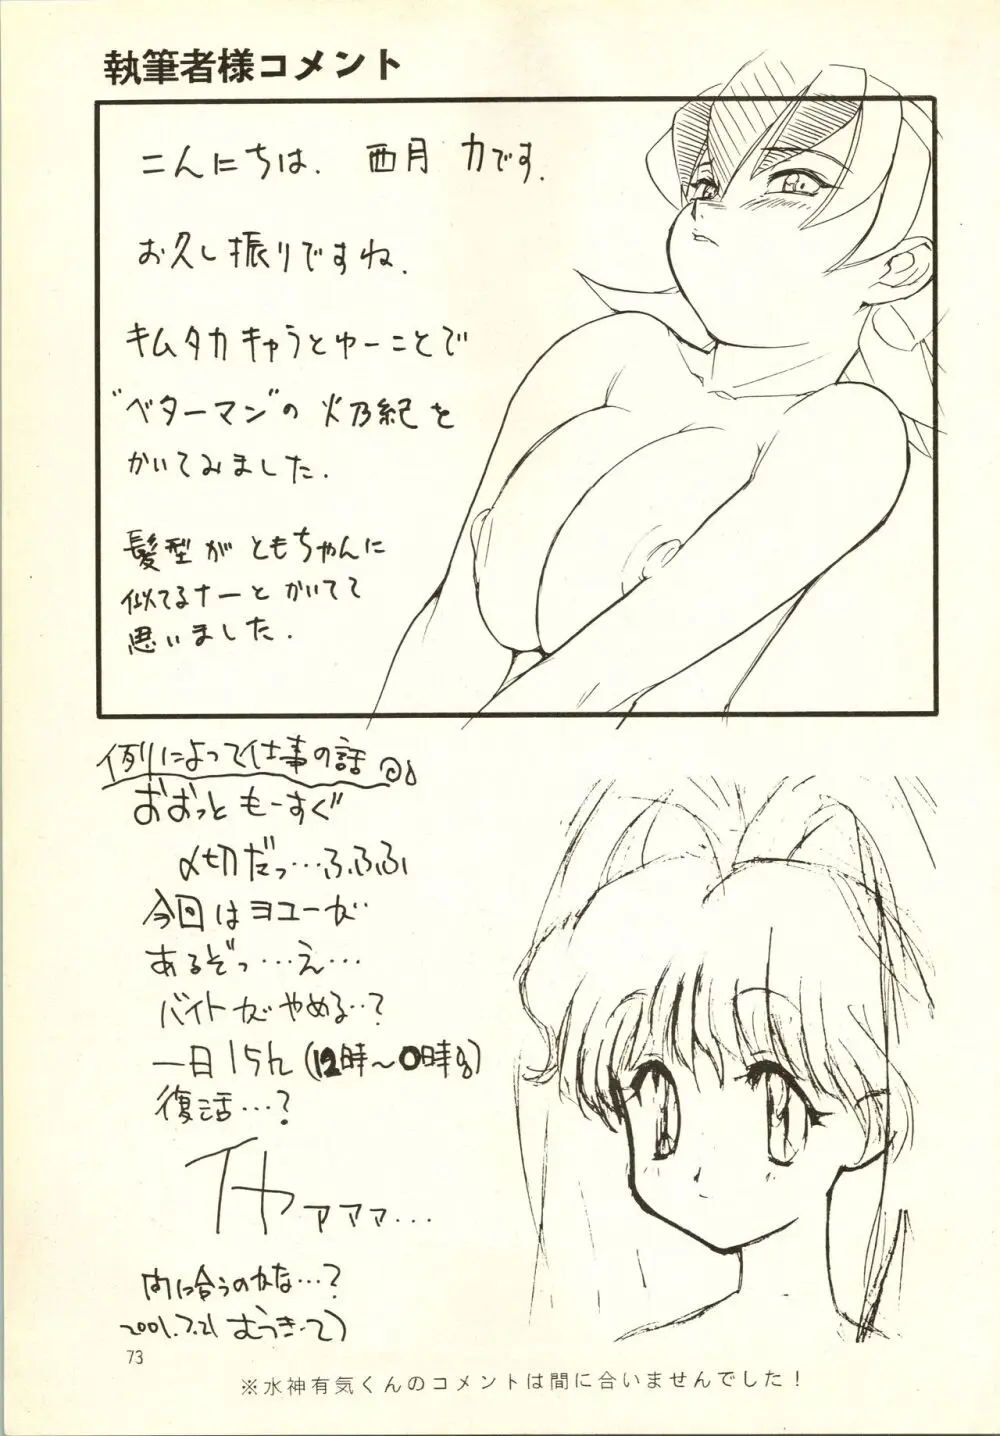 執筆者様コメント
こんにちは. 西月 力です.
お久し振りですね.
キムタカキャラとゆーことで
"ベターマン"の 火乃紀を
かいてみました.
髪型が ともちゃんに
似てるナーと かいてて
思いました.
例によって仕事の話
おおっと もーすぐ
〆切だっ…ふふふ
今回は ヨユーが
あるぞっ…え…
バイトが やめる…?
一日15h (12時～0時
復活…?
イヤァァァ…
間に合うのかな…?
2001.7.21
73
※水神有気くんのコメントは間に合いませんでした！